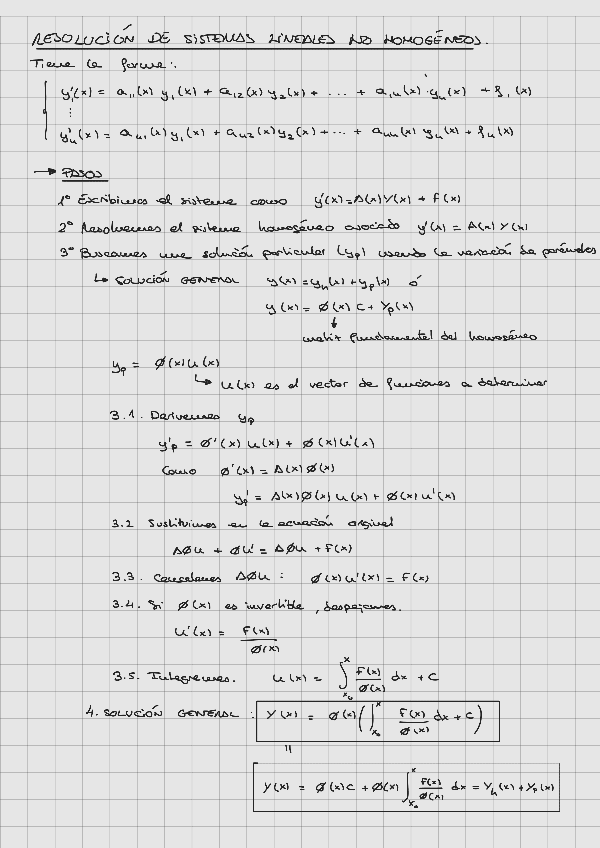 RESOLUCIÓN DE SISTEMAS LINEALES NO HOMOGÉNEOS.
Tiene la forma:
y'₁(x) = a₁₁(x) y₁(x) + a₁₂(x) y₂(x) + ... + a₁ₙ(x) yₙ(x) + f₁(x)
⋮
y'ₙ(x) = aₙ₁(x) y₁(x) + aₙ₂(x) y₂(x) + ... + aₙₙ(x) yₙ(x) + fₙ(x)
→ PASOS
1º Escribimos el sistema como y'(x) = A(x) Y(x) + F(x)
2º Resolvemos el sistema homogéneo asociado y'(x) = A(x) Y(x)
3º Buscamos una solución particular (yp) usando la variación de parámetros
↳ SOLUCIÓN GENERAL y(x) = yh(x) + yp(x) ó
y(x) = Ø(x) C + Yp(x)
↓
matriz fundamental del homogéneo
yp = Ø(x) u(x)
↳ u(x) es el vector de funciones a determinar
3.1. Derivamos yp
y'p = Ø'(x) u(x) + Ø(x) u'(x)
Como Ø'(x) = A(x) Ø(x)
yp' = A(x) Ø(x) u(x) + Ø(x) u'(x)
3.2 Sustituimos en la ecuación original
AØu + Øu' = AØu + F(x)
3.3. Cancelamos AØu : Ø(x) u'(x) = F(x)
3.4. Si Ø(x) es invertible, despejamos.
u'(x) = F(x) / Ø(x)
3.5. Integramos. u(x) = ∫ₓ₀ˣ F(x)/Ø(x) dx + C
4. SOLUCIÓN GENERAL : Y(x) = Ø(x) (∫ₓ₀ˣ F(x)/Ø(x) dx + C)
=
Y(x) = Ø(x) C + Ø(x) ∫ₓ₀ˣ F(x)/Ø(x) dx = Yh(x) + Yp(x)